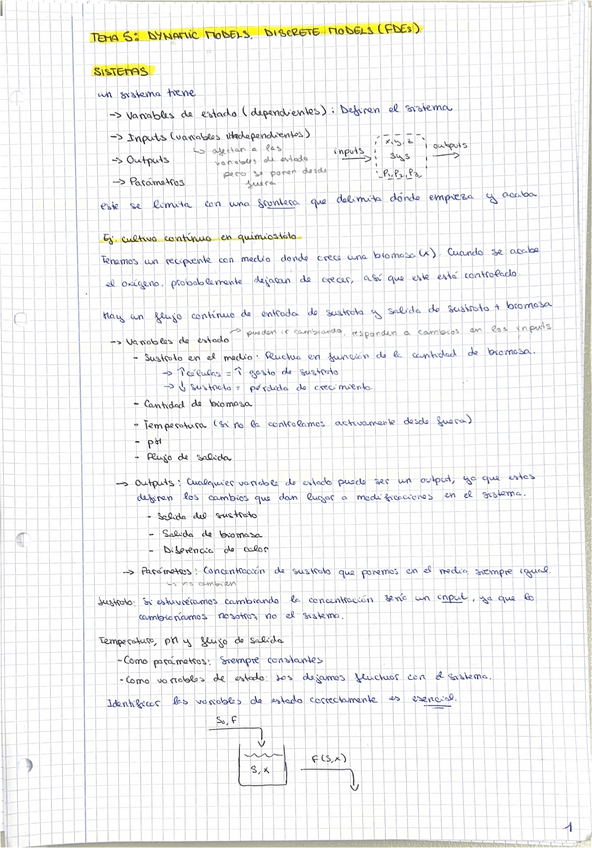 TEMA 5: DYNAMIC MODELS. DISCRETE MODELS (FDEs)
SISTEMAS
un sistema tiene
-> Variables de estado (dependientes): Definen el sistema
-> Inputs (variables independientes)
↳ afectan a las variables de estado pero se ponen desde fuera
-> Outputs
-> Parámetros
inputs
x, y, z
sys
P1, P2, P3
outputs
este se limita con una frontera que delimita dónde empieza y acaba
Ej: cultivo continuo en quimiostato
Tenemos un recipiente con medio donde crece una biomasa (x). Cuando se acabe
el oxígeno, probablemente dejaran de crecer, así que este está controlado.
Hay un flujo continuo de entrada de sustrato y salida de sustrato + biomasa
-> Variables de estado
pueden ir cambiando, responden a cambios en los inputs
- Sustrato en el medio: Fluctua en función de la cantidad de biomasa.
-> ↑células = ↑ gasto de sustrato
-> ↓ sustrato = pérdida de crecimiento
- Cantidad de biomasa
- Temperatura (si no la controlamos activamente desde fuera)
- pH
- Flujo de salida
-> Outputs: Cualquier variable de estado puede ser un output, ya que estas
definen los cambios que dan lugar a modificaciones en el sistema.
- Salida del sustrato
- Salida de biomasa
- Diferencia de calor
-> Parámetros: Concentración de sustrato que ponemos en el medio siempre igual.
↳ no cambian
Sustrato: Si estuviéramos cambiando la concentración sería un input, ya que lo
cambiaríamos nosotros no el sistema.
Temperatura, pH y flujo de salida
- Como parámetros: Siempre constantes
- Como variables de estado: Los dejamos fluctuar con el sistema.
Identificar las variables de estado correctamente es esencial.
S0, F
S, X
F(S,X)
1